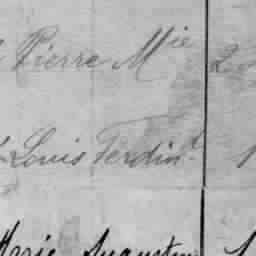 Pierre Mie 2
Louis Ferdint 1
Marie Augustin 1